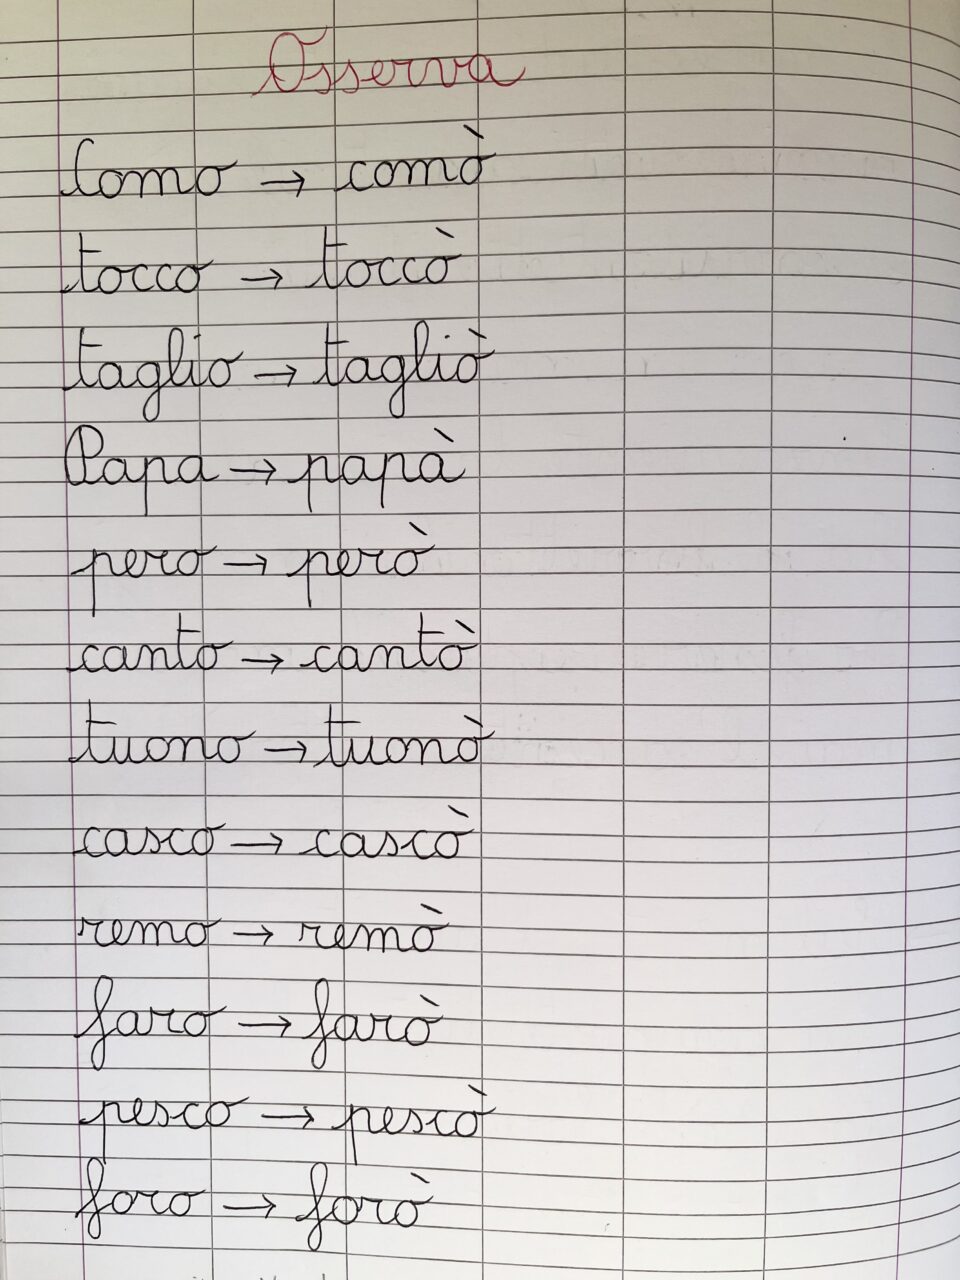 Osserva
Como → comò
tocco → toccò
taglio → tagliò
Papa → papà
pero → però
canto → cantò
tuono → tuonò
casco → cascò
remo → remò
faro → farò
pesco → pescò
foro → forò